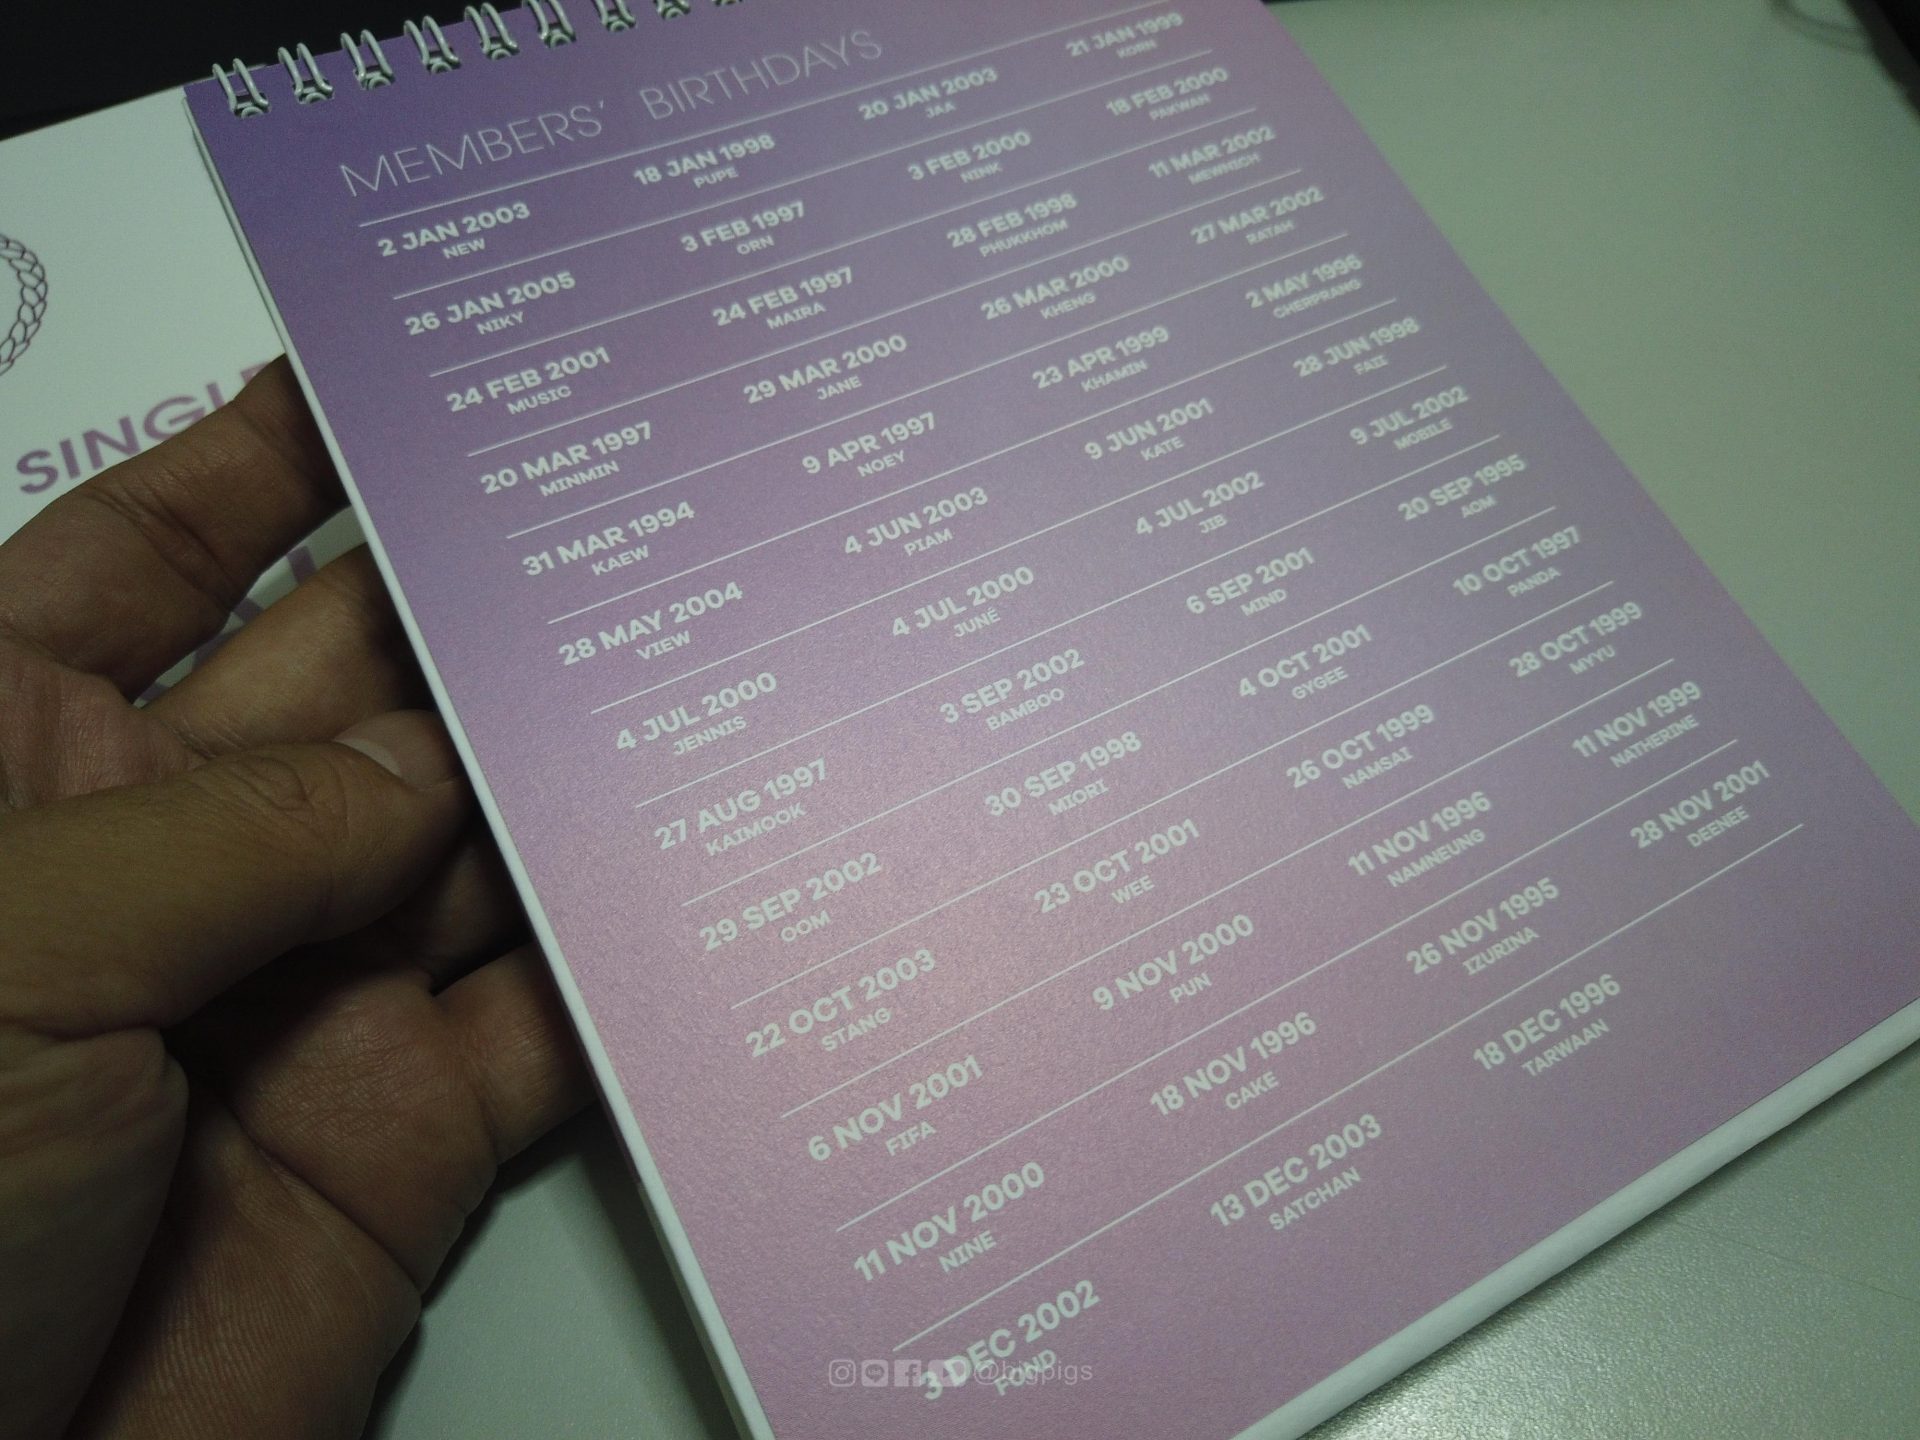 MEMBERS' BIRTHDAYS
2 JAN 2003 18 JAN 1998 20 JAN 2003 21 JAN 1999
NEW PUPE JAA KORN
26 JAN 2005 3 FEB 1997 3 FEB 2000 18 FEB 2000
NIKY ORN NINK PAKWAN
24 FEB 2001 24 FEB 1997 28 FEB 1998 11 MAR 2002
MUSIC MAIRA PHUKKHOM MEWNICH
20 MAR 1997 29 MAR 2000 26 MAR 2000 27 MAR 2002
MINMIN JANE KHENG RATAH
31 MAR 1994 9 APR 1997 23 APR 1999 2 MAY 1996
KAEW NOEY KHAMIN CHERPRANG
28 MAY 2004 4 JUN 2003 9 JUN 2001 28 JUN 1998
VIEW PIAM KATE FAII
4 JUL 2000 4 JUL 2000 4 JUL 2002 9 JUL 2002
JENNIS JUNÉ JIB MOBILE
27 AUG 1997 3 SEP 2002 6 SEP 2001 20 SEP 1995
KAIMOOK BAMBOO MIND AOM
29 SEP 2002 30 SEP 1998 4 OCT 2001 10 OCT 1997
OOM MIORI GYGEE PANDA
22 OCT 2003 23 OCT 2001 26 OCT 1999 28 OCT 1999
STANG WEE NAMSAI MYYU
6 NOV 2001 9 NOV 2000 11 NOV 1996 11 NOV 1999
FIFA PUN NAMNEUNG NATHERINE
11 NOV 2000 18 NOV 1996 26 NOV 1995 28 NOV 2001
NINE CAKE IZURINA DEENEE
3 DEC 2002 13 DEC 2003 18 DEC 1996
FOND SATCHAN TARWAAN
@bigpigs